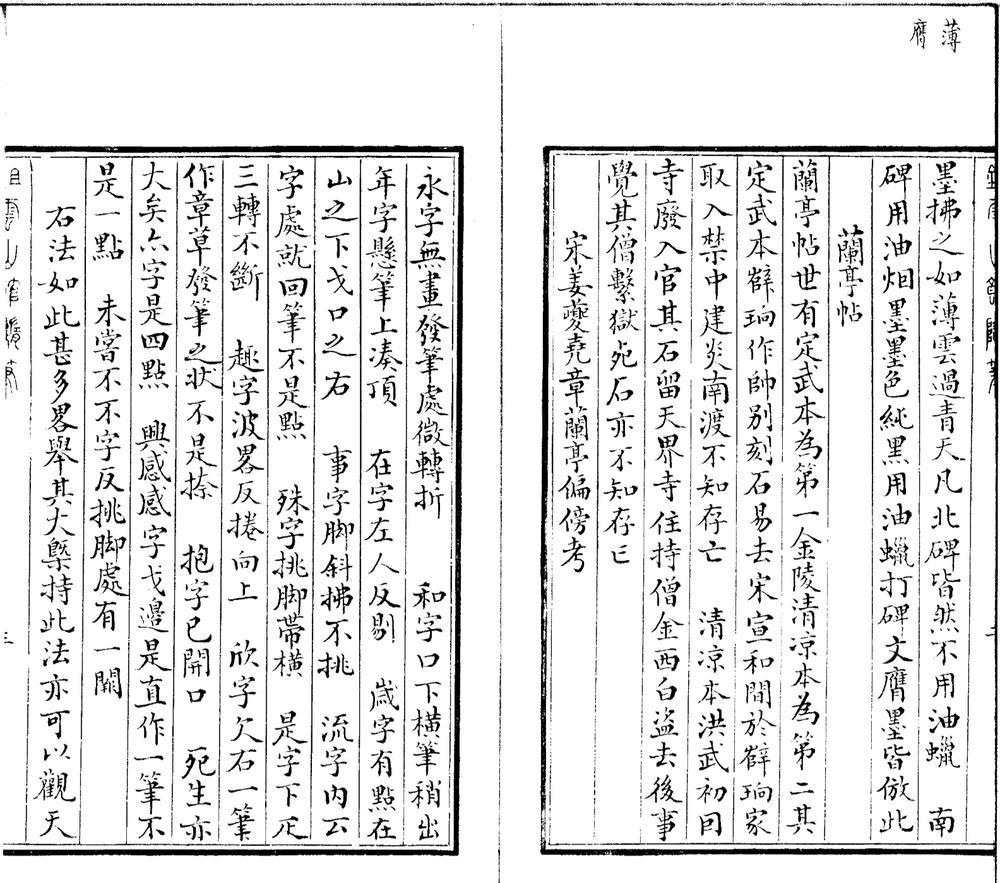 薄
膺
墨拂之如薄雲過青天凡北碑皆然不用油蠟　南
碑用油烟墨墨色純黑用油蠟打碑文膺墨皆倣此
蘭亭帖
蘭亭帖世有定武本為第一金陵清凉本為第二其
定武本薛珦作帥别刻石易去宋宣和間於薛珦家
取入禁中建炎南渡不知存亡　清凉本洪武初因
寺廢入官其石留天界寺住持僧金西白盜去後事
覺其僧繫獄死石亦不知存亡
宋姜夔堯章蘭亭偏傍考
永字無畫發筆處微轉折　和字口下横筆稍出
年字懸筆上凑頂　在字左人反剔　歲字有點在
山之下戈口之右　事字脚斜拂不挑　流字内云
字處就回筆不是點　殊字挑脚帶横　是字下疋
三轉不斷　趣字波畧反捲向上　欣字欠右一筆
作章草發筆之狀不是捺　抱字已開口　死生亦
大矣亦字是四點　興感感字戈邊是直作一筆不
是一點　未嘗不不字反挑脚處有一闕
右法如此甚多畧舉其大槩持此法亦可以觀天
三